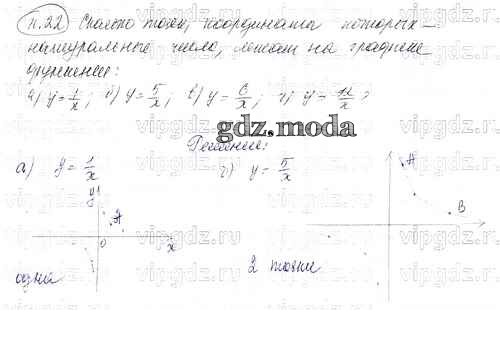 н.22 Сколько точек, координаты которых –
натуральные числа, лежат на графике
функции:
а) y = 1/x; б) y = 5/x; в) y = 6/x; г) y = n/x ?
gdz.moda
Решение:
а) y = 1/x
б) y = 5/x
y
A
0
x
A
B
одна
2 точки
vipgdz.ru